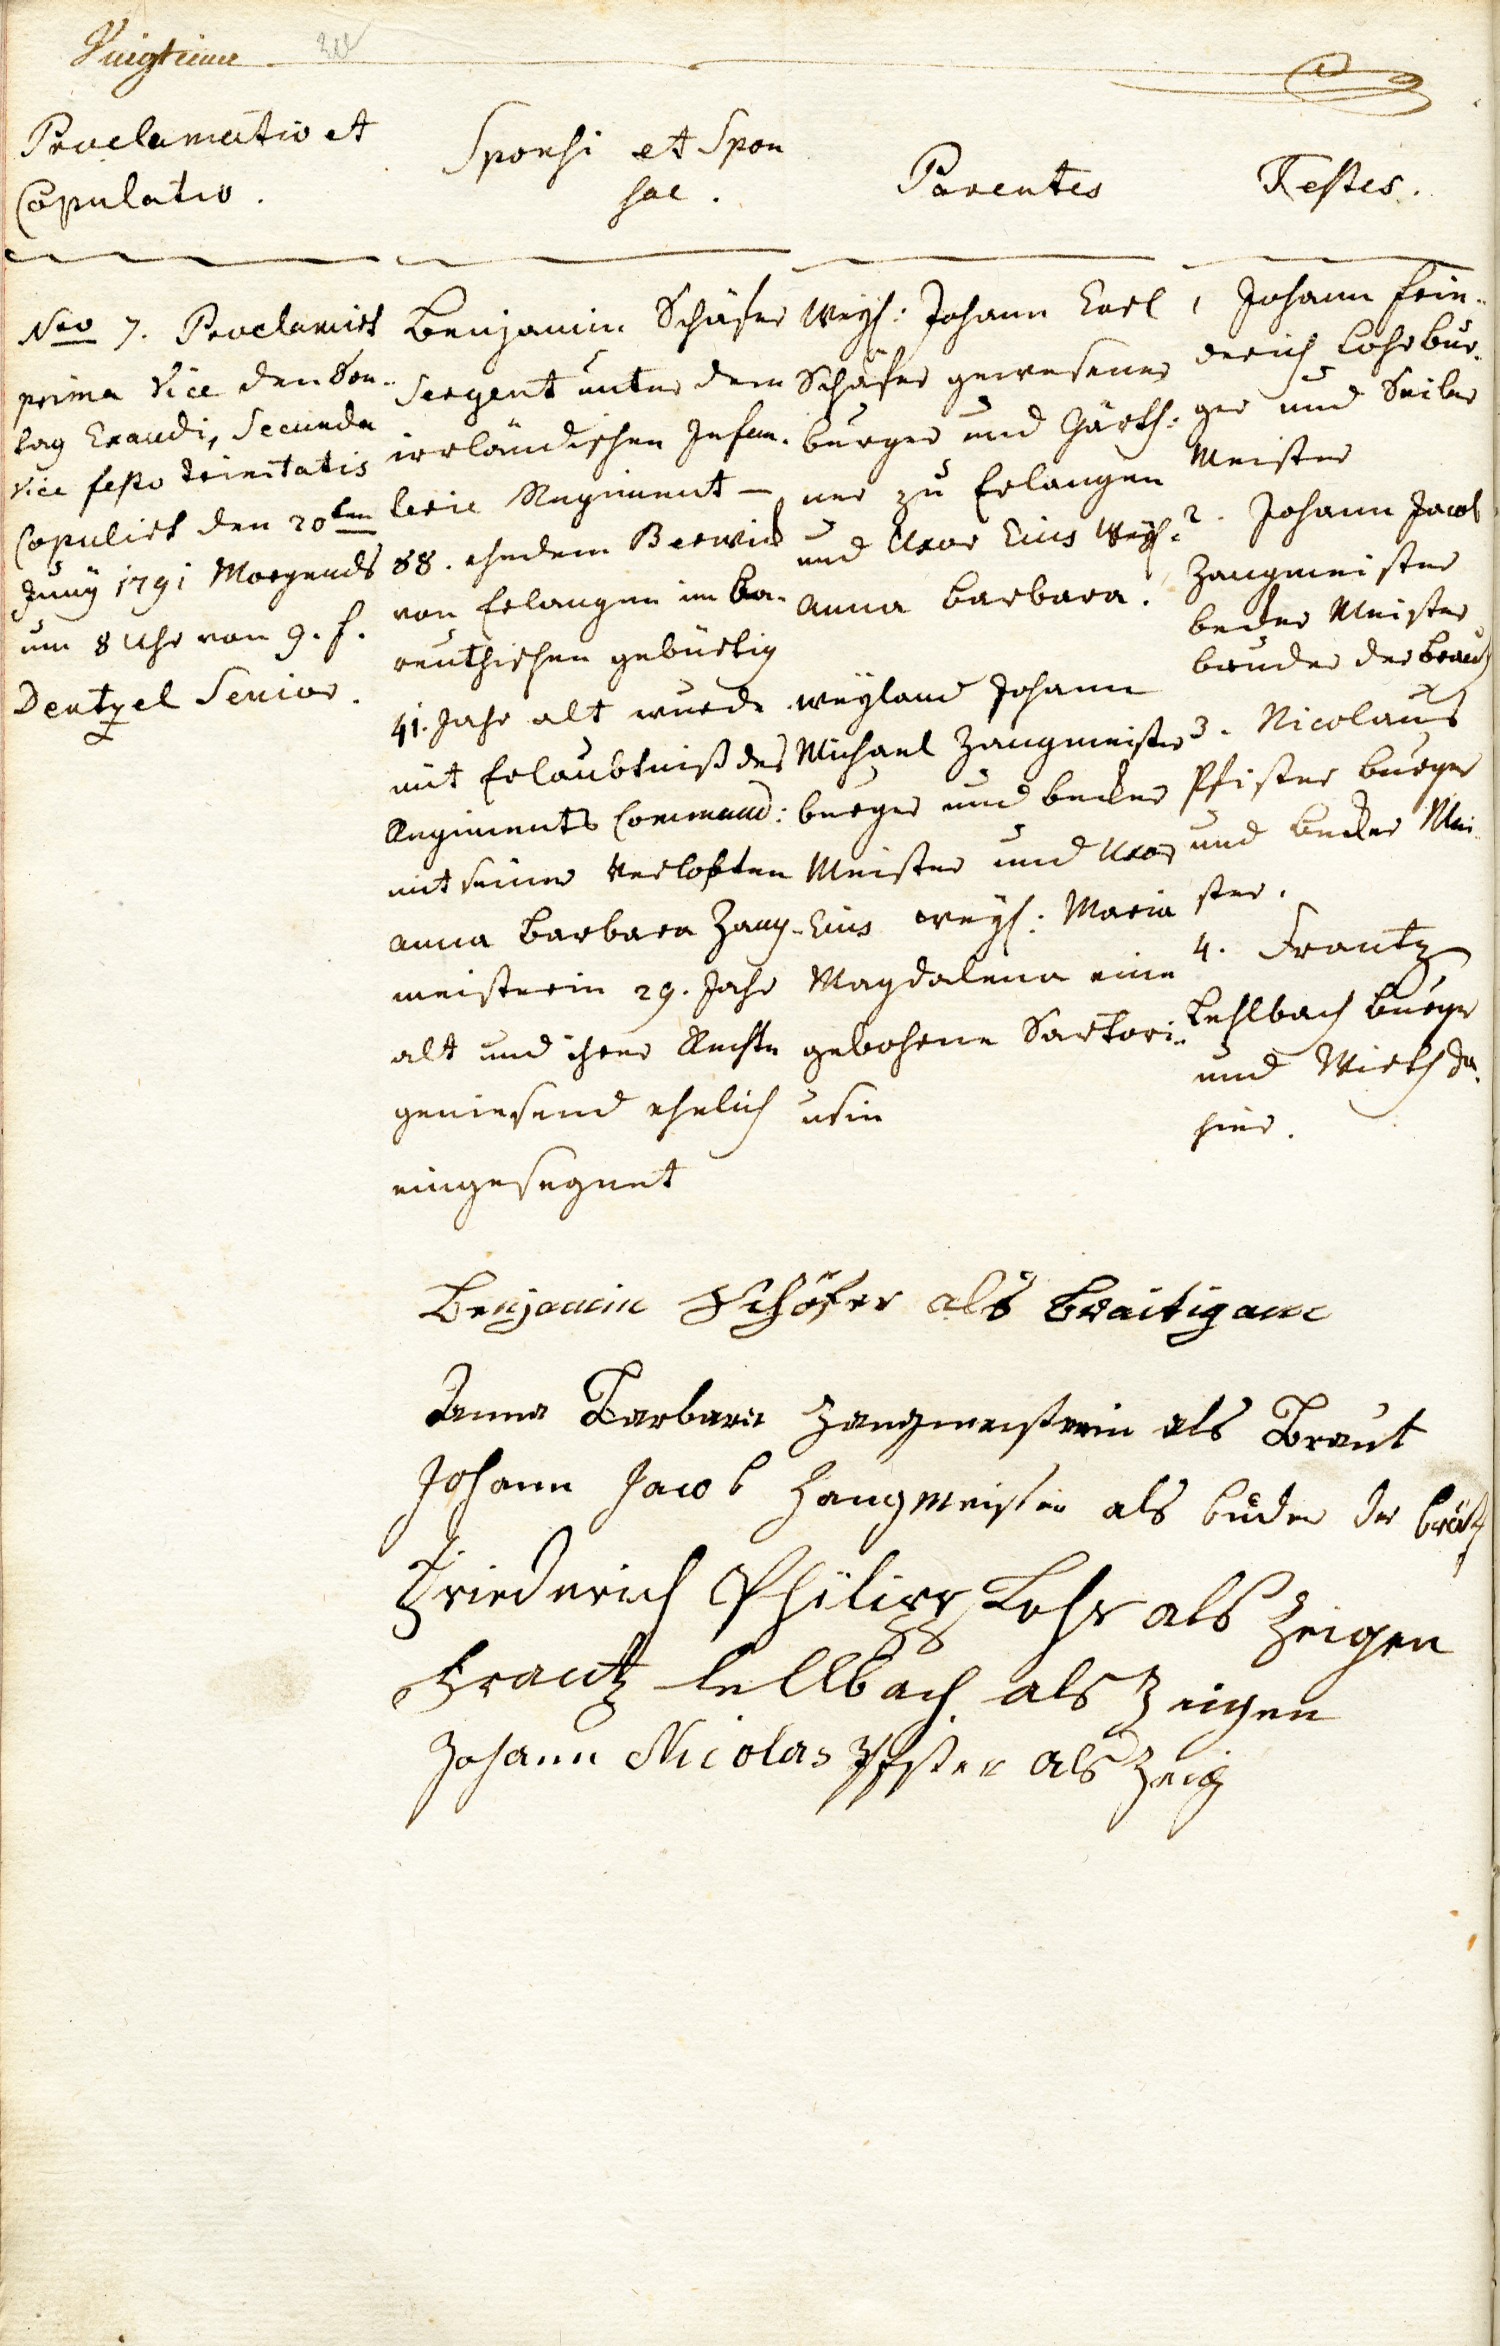 Vingtieme
Proclamatio et
Copulatio.
Sponsi et Spon
sae.
Parentes
Testes.
Nro 7. Proclamirt
prima Vice den Son-
tag Exaudi, Secunda
Vice festo trinitatis
Copulirt den 20ten
Juny 1791 Morgends
um 8 Uhr von H. H.
Dentzel Senior.
Benjamin Schäfer
Sergent unter dem
irrländischen Infan-
terie Regiment —
88. ehedem Berwick
von Erlangen im Ba-
reuthischen gebürtig
41. Jahr alt wurde
mit Erlaubtniß des
Regiments Command:
mit seiner Verlobten
Anna Barbara Zang-
meisterin 29. Jahr
alt und ihrer Rechte
geniesend ehelich
eingesegnet
Weyl: Johann Carl
Schäfer gewesener
burger und Gärth:
ner zu Erlangen
und Uxor Eius Weyl:
Anna Barbara.
weyland Johann
Michael Zangmeister
burger und becker
Meister und Uxor
Eius weyl: Maria
Magdalena eine
gebohrne Sartori-
usin
1 Johann Frie-
derich Lohr bur-
ger und Seiler
Meister
2. Johann Jacob
Zangmeister
becker Meister
bruder der braut
3. Nicolaus
Pfister burger
und becker Mei-
ster.
4. Frantz
Lehlbach burger
und Wirth da-
hier.
Benjamin Schöfer als Braitigam
Anna Barbara Zangmeisterin als Braut
Johann Jacob Zangmeister als buder der braut
Friederich Philipp Lohr als Zeigen
Frantz lellbach als Zeigen
Johann Nicolas Pfster als Zeig